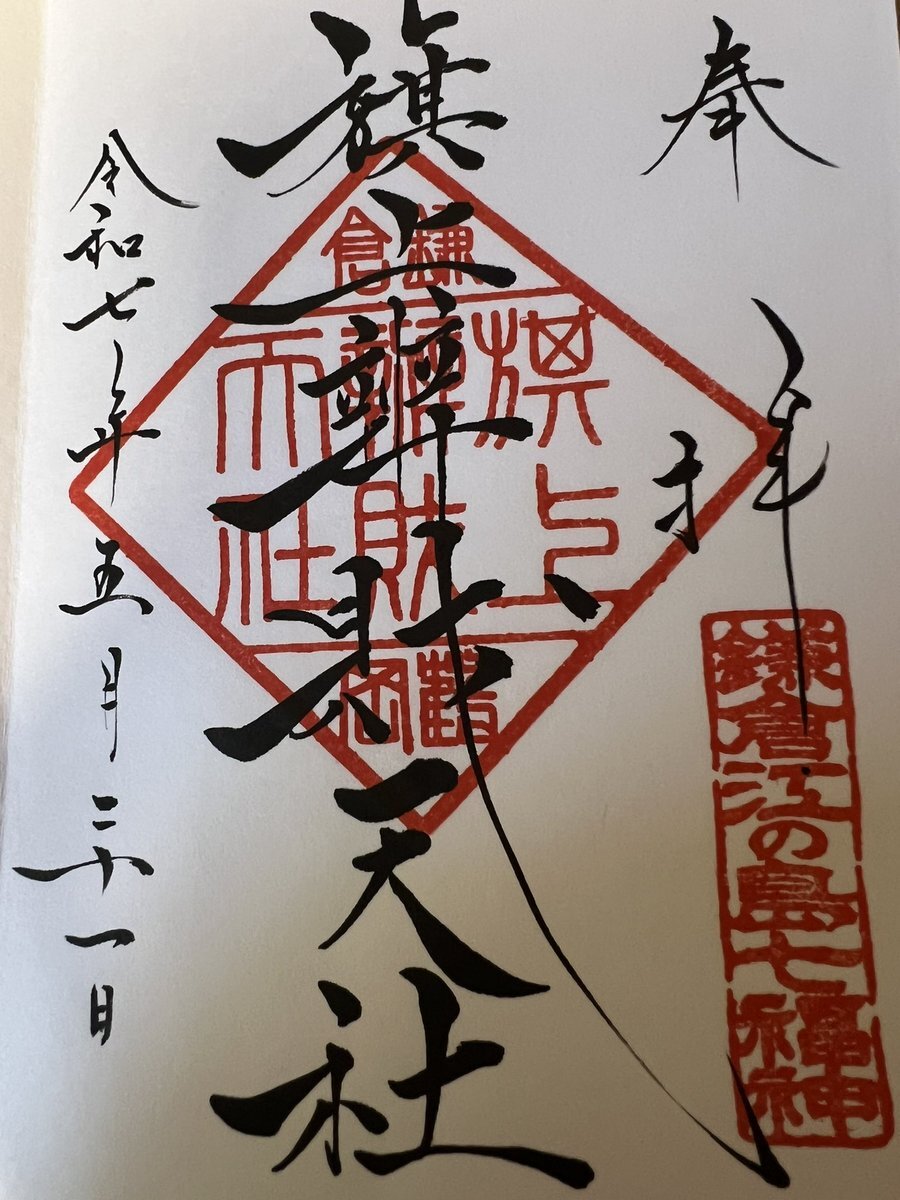 奉拝
鎌倉江の島七福神
旗上辨財天社
鎌倉
旗上
辨財
天社
鶴岡
令和七年五月二十一日